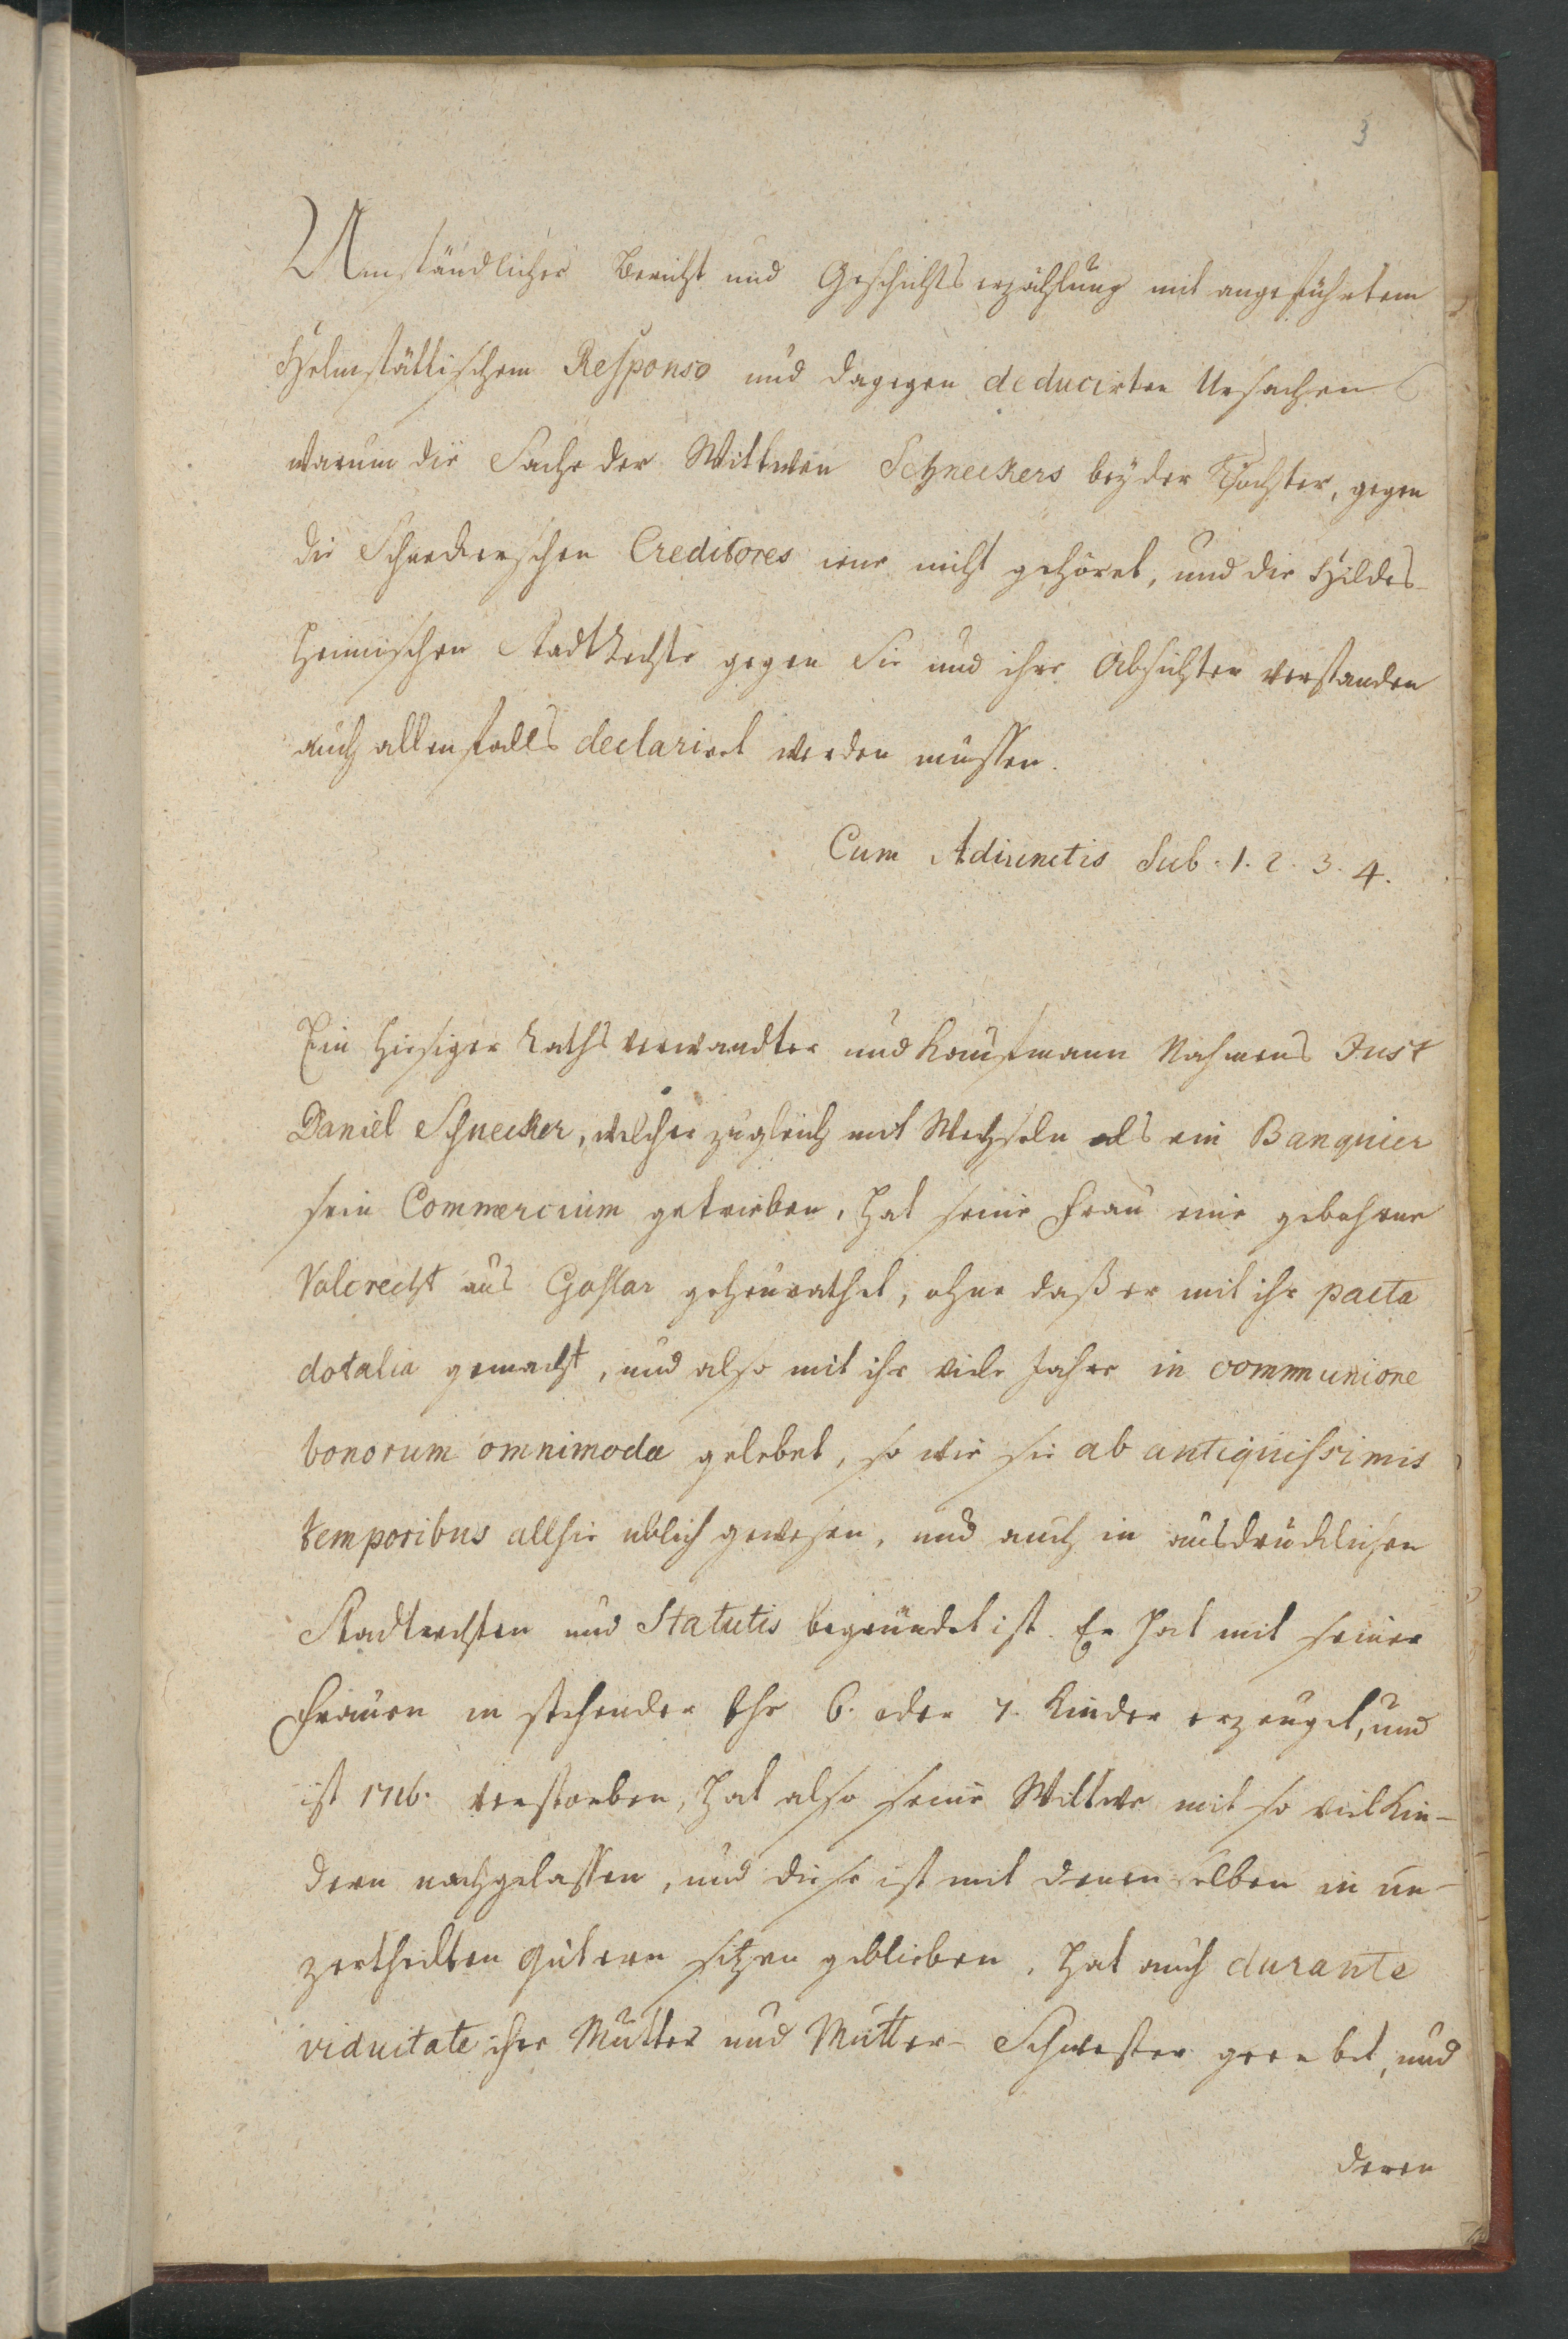 3
Umständlicher Bericht und Geschichtserzählung mit angeführtem
Helmstättischem Responso und dagegen deducirten Ursachen
warum die Sache der Wittwen Schneckers beyder Töchter, gegen
die Schneckerschen Creditores nicht gehöret, und die Hildes-
heimischen StadtRechte gegen Sie und ihre Absichten verstanden
auch allenfalls declariret werden müssen.
Cum Adiunctis Sub. 1. 2. 3. 4.
Ein hiesiger Rathsverwandter und Kaufmann Nahmens Just
Daniel Schnecker, welcher zugleich mit Wechseln als ein Banquier
sein Commercium getrieben, hat seine Frau eine gebohrne
Volcrecht aus Goslar geheurathet, ohne daß er mit ihr pacta
dotalia gemacht, und also mit ihr viele Jahre in communione
bonorum omnimoda gelebet, so wie sie ab antiquissimis
temporibus allhie üblich gewesen, und auch in ausdrücklichen
Stadtrechten und Statutis begründet ist. Er hat mit seiner
Frauen in stehender Ehe 6. oder 7. Kinder erzeuget, und
ist 1716. verstorben, hat also seine Wittwe mit so viel Kin-
dern nachgelassen, und diese ist mit denenselben in un-
zertheilten Gütern sitzen geblieben, hat auch durante
viduitate ihre Mutter und Mutter-Schwester geerbet, und
deren